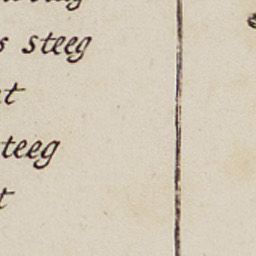 s steeg
t
teeg
t